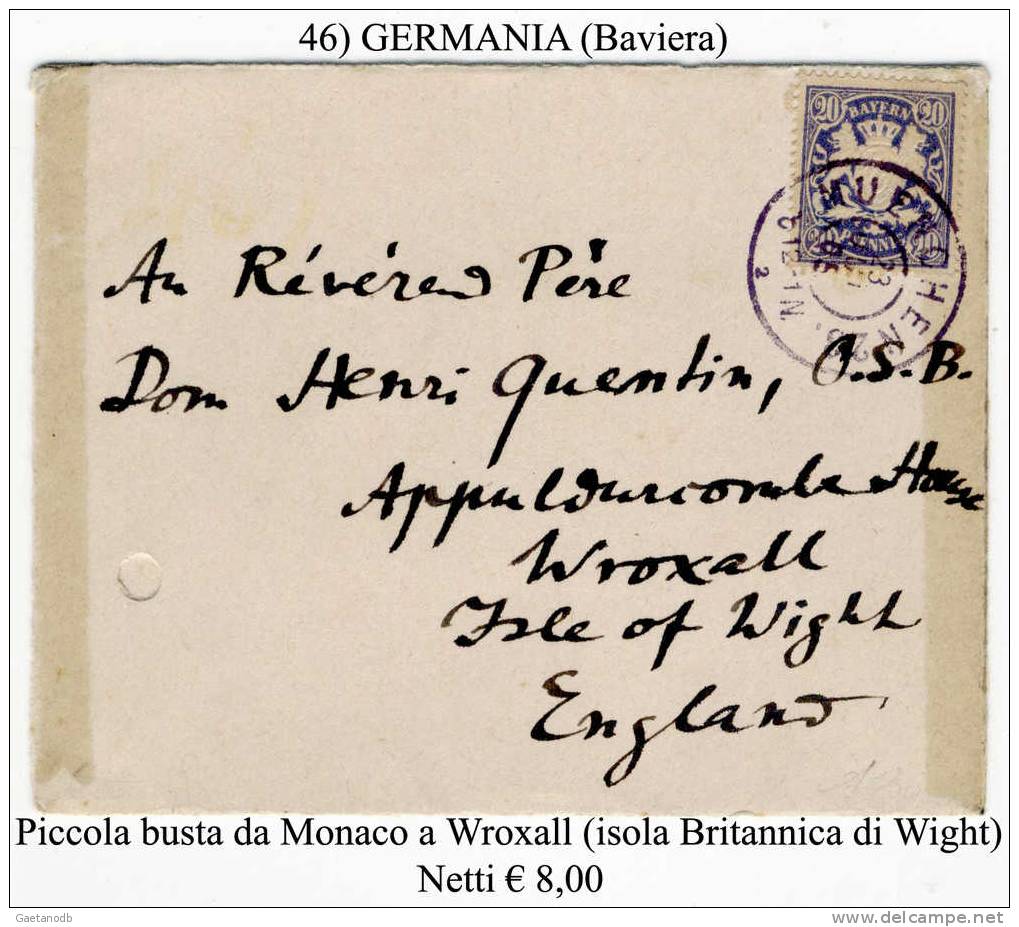 46) GERMANIA (Baviera)
20 BAYERN 20
20 PFENNIG 20
MUENCHEN 23.
23
12-1N
2
An Révérend Père
Dom Henri Quentin, O.S.B.
Appuldurcombe House
Wroxall
Isle of Wight
England
Piccola busta da Monaco a Wroxall (isola Britannica di Wight)
Netti € 8,00
Gaetanodb
www.delcampe.net